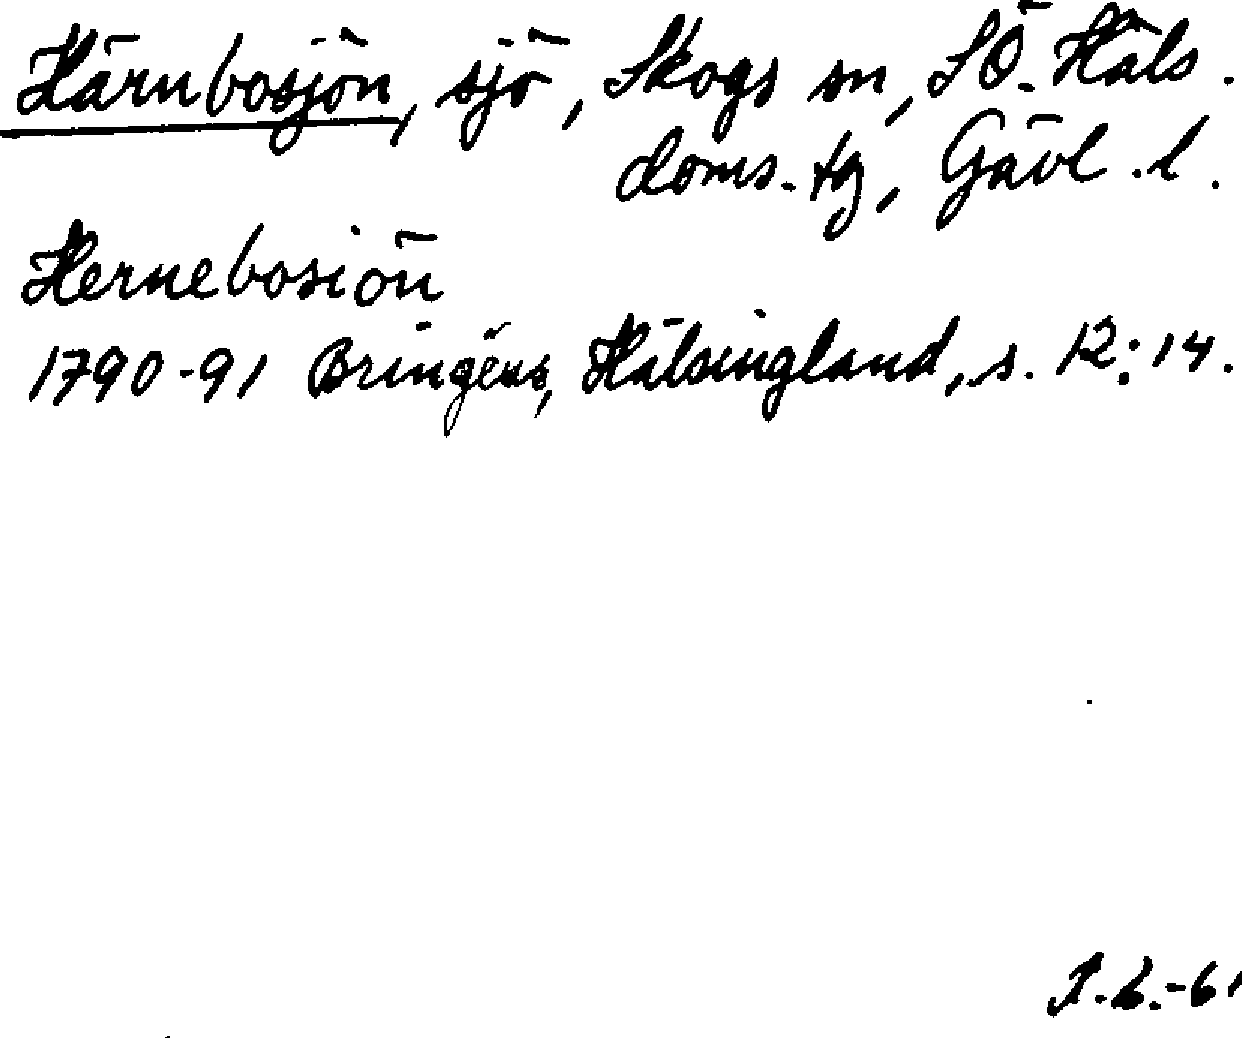 Härnbosjön, sjö, Skogs sn, SÖ. Häls.
doms. tg, Gävl. l.
Hernebosiön
1790-91 Bringéus, Hälsingland, s. 12:14.